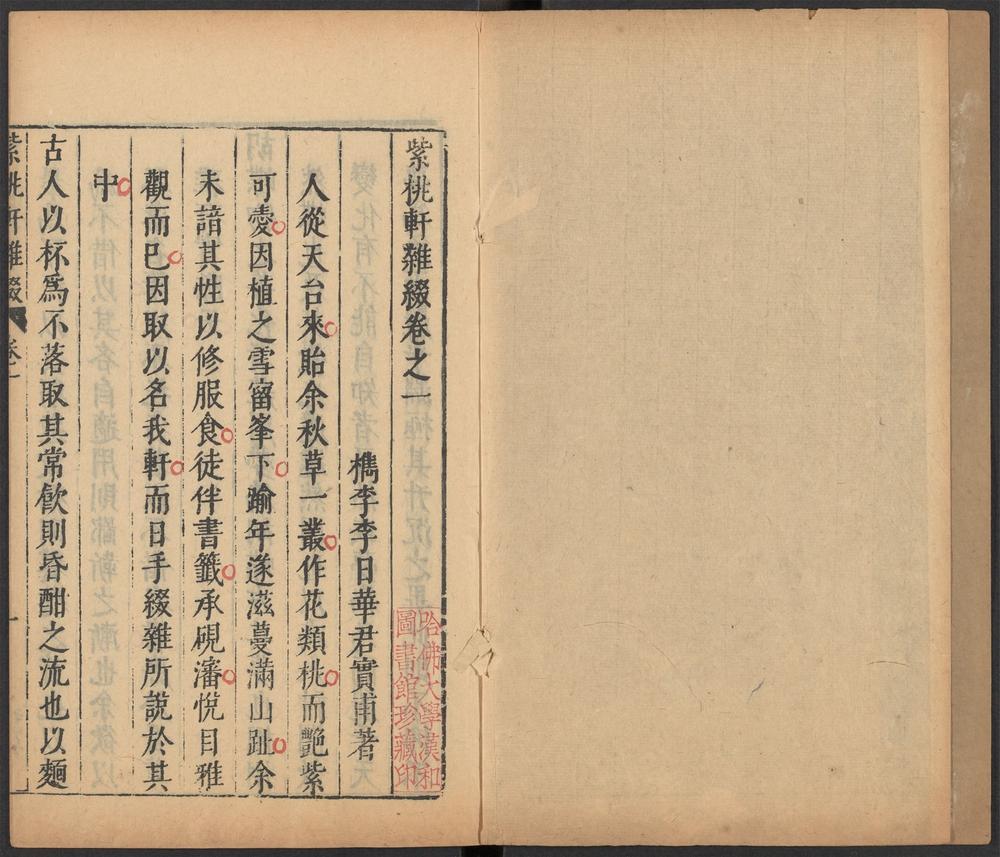 紫桃軒雜綴卷之一
檇李李日華君實甫著
人從天台來貽余秋草一叢作花類桃而艷紫
可愛因植之雪窗峯下踰年遂滋蔓滿山趾余
未諳其性以修服食徒伴書籤承硯瀋悅目雅
觀而已因取以名我軒而日手綴雜所說於其
中
古人以杯爲不落取其常飲則昏酣之流也以麵
紫桃軒雜綴 卷之一 一
哈佛大學漢和
圖書館珍藏印